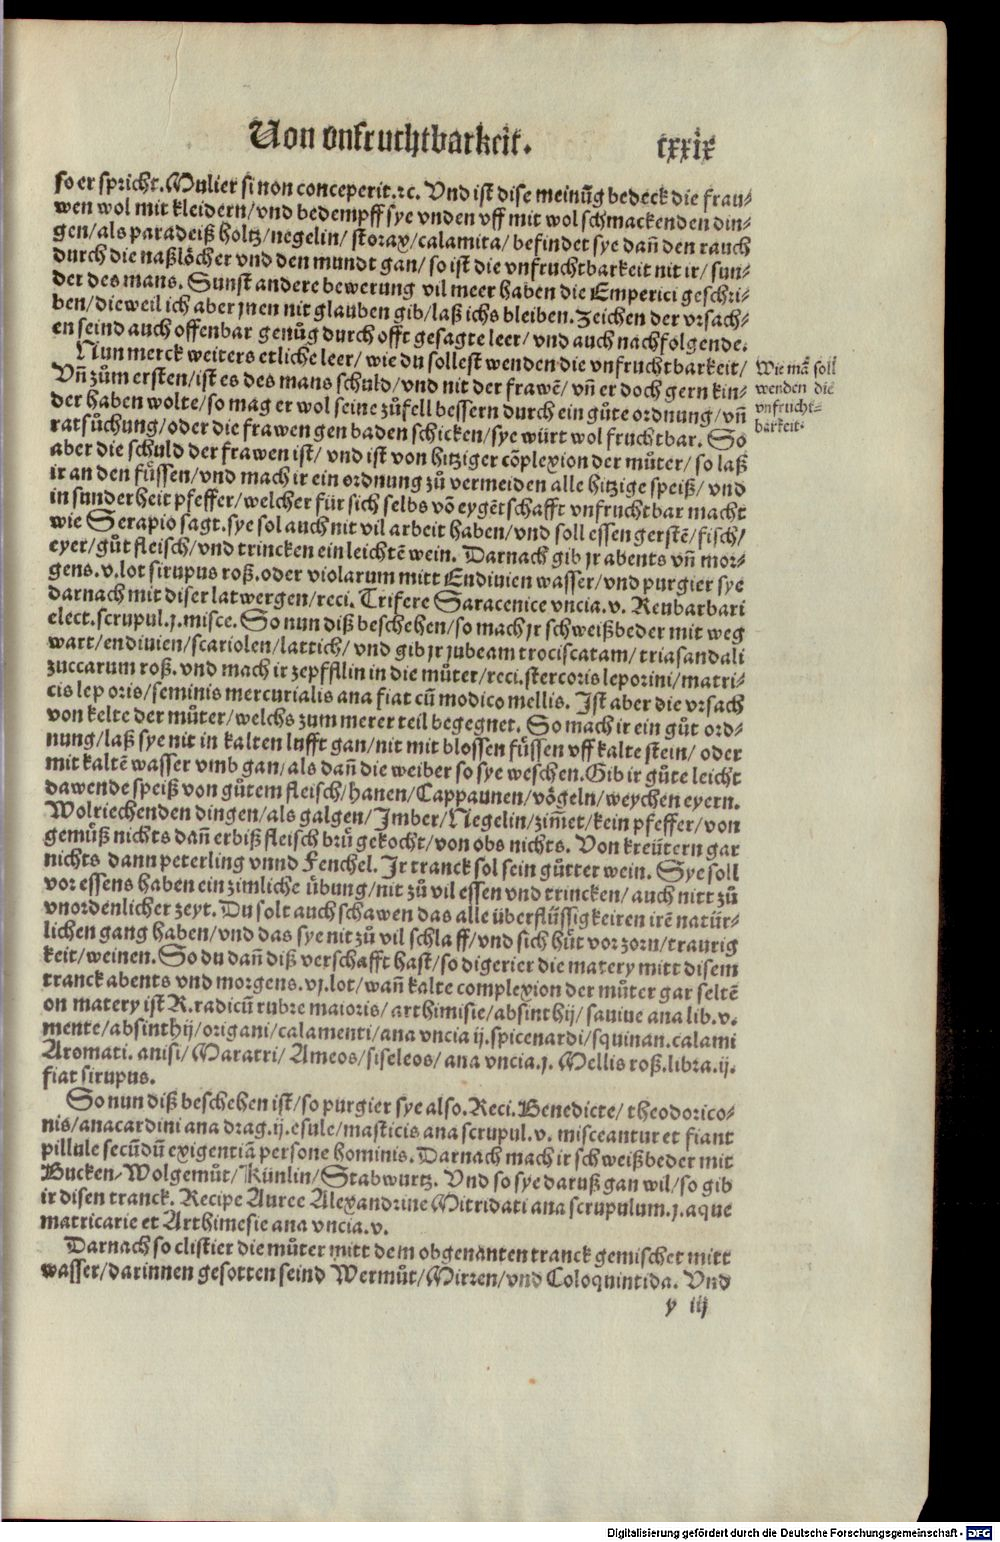 Von vnfruchtbarkeit. cxxix
so er spricht. Mulier si non conceperit.ꝛc. Vnd ist dise meinūg bedeck die frau⸗
wen wol mit kleidern/vnd bedempff sye vnden vff mit wol schmackenden din⸗
gen/als paradeiß holtz/negelin/ storax/calamita/ befindet sye dañ den rauch
durch die naßlöcher vnd den mundt gan/ so ist die vnfruchtbarkeit nit ir/ sun⸗
der des mans. Sunst andere bewerung vil meer haben die Emperici geschri⸗
ben/dieweil ich aber jnen nit glauben gib/laß ichs bleiben. Zeichen der vrsach⸗
en seind auch offenbar genůg durch offt gesagte leer/ vnd auch nachfolgende.
Nun merck weiters etliche leer/ wie du sollest wenden die vnfruchtbarkeit/
Vñ zům ersten/ist es des mans schuld/vnd nit der frawē/ vñ er doch gern kin⸗
der haben wolte/so mag er wol seine zůfell bessern durch ein gůte ordnung/vñ
ratsůchung/oder die frawen gen baden schicken/sye würt wol fruchtbar. So
aber die schuld der frawen ist/ vnd ist von hitziger cōplexion der můter/ so laß
ir an den füssen/vnd mach ir ein ordnung zů vermeiden alle hitzige speiß/ vnd
in sunderheit pfeffer/welcher für sich selbs vō eygētschafft vnfruchtbar macht
wie Serapio sagt. sye sol auch nit vil arbeit haben/vnd soll essen gerstē/fisch/
eyer/gůt fleisch/vnd trincken ein leichtē wein. Darnach gib jr abents vñ mor⸗
gens.v.lot sirupus roß.oder violarum mitt Endiuien wasser/vnd purgier sye
darnach mit diser latwergen/reci. Trifere Saracenice vncia.v. Reubarbari
elect.scrupul.j.misce. So nun diß beschehen/so mach jr schweißbeder mit weg
wart/endiuien/scariolen/lattich/ vnd gib jr jubeam trociscatam/ triasandali
zuccarum roß.vnd mach ir zepfflin in die můter/reci.stercoris leporini/matri⸗
cis leporis/seminis mercurialis ana fiat cū modico mellis. Ist aber die vrsach
von kelte der můter/welchs zum merer teil begegnet. So mach ir ein gůt ord⸗
nung/laß sye nit in kalten lufft gan/nit mit blossen füssen vff kalte stein/ oder
mit kaltē wasser vmb gan/als dañ die weiber so sye weschen. Gib ir gůte leicht
dawende speiß von gůtem fleisch/hanen/Cappaunen/vögeln/weychen eyern.
Wolriechenden dingen/als galgen/Jmber/Negelin/zim̄et/kein pfeffer/von
gemůß nichts dañ erbiß fleisch brů gekocht/von obs nichts. Von kreütern gar
nichts dann peterling vnnd Fenchel. Jr tranck sol sein gůtter wein. Sye soll
vor essens haben ein zimliche übung/nit zů vil essen vnd trincken/auch nitt zů
vnordenlicher zeyt. Du solt auch schawen das alle überflüssigkeiren irē natür⸗
lichen gang haben/vnd das sye nit zů vil schlaff/vnd sich hüt vor zorn/traurig
keit/weinen. So du dañ diß verschafft hast/so digerier die matery mitt disem
tranck abents vnd morgens.vj.lot/wañ kalte complexion der můter gar seltē
on matery ist R. radicū rubre maioris/ arthimisie/absinthij/ sauiue ana lib.v.
mente/absinthij/origani/calamenti/ana vncia ij.spicenardi/squinan.calami
Aromati. anisi/Maratri/ Ameos/siseleos/ ana vncia.j. Mellis roß.libra.ij.
fiat sirupus.
So nun diß beschehen ist/so purgier sye also. Reci. Benedicte/ theodorico⸗
nis/anacardini ana drag.ij.esule/masticis ana scrupul.v. misceantur et fiant
pillule secūdū exigentiā persone hominis. Darnach mach ir schweißbeder mit
Bucken/Wolgemůt/Künlin/Stabwurtz. Vnd so sye daruß gan wil/so gib
ir disen tranck. Recipe Auree Alexandrine Mitridati ana scrupulum.j.aque
matricarie et Arthimesie ana vncia.v.
Darnach so clistier die můter mitt dem obgenanten tranck gemischet mitt
wasser/darinnen gesotten seind Wermůt/Mirren/vnd Coloquintida. Vnd
y iij
Wie mā soll
wenden die
vnfrucht⸗
barkeit.
Digitalisierung gefördert durch die Deutsche Forschungsgemeinschaft - DFG